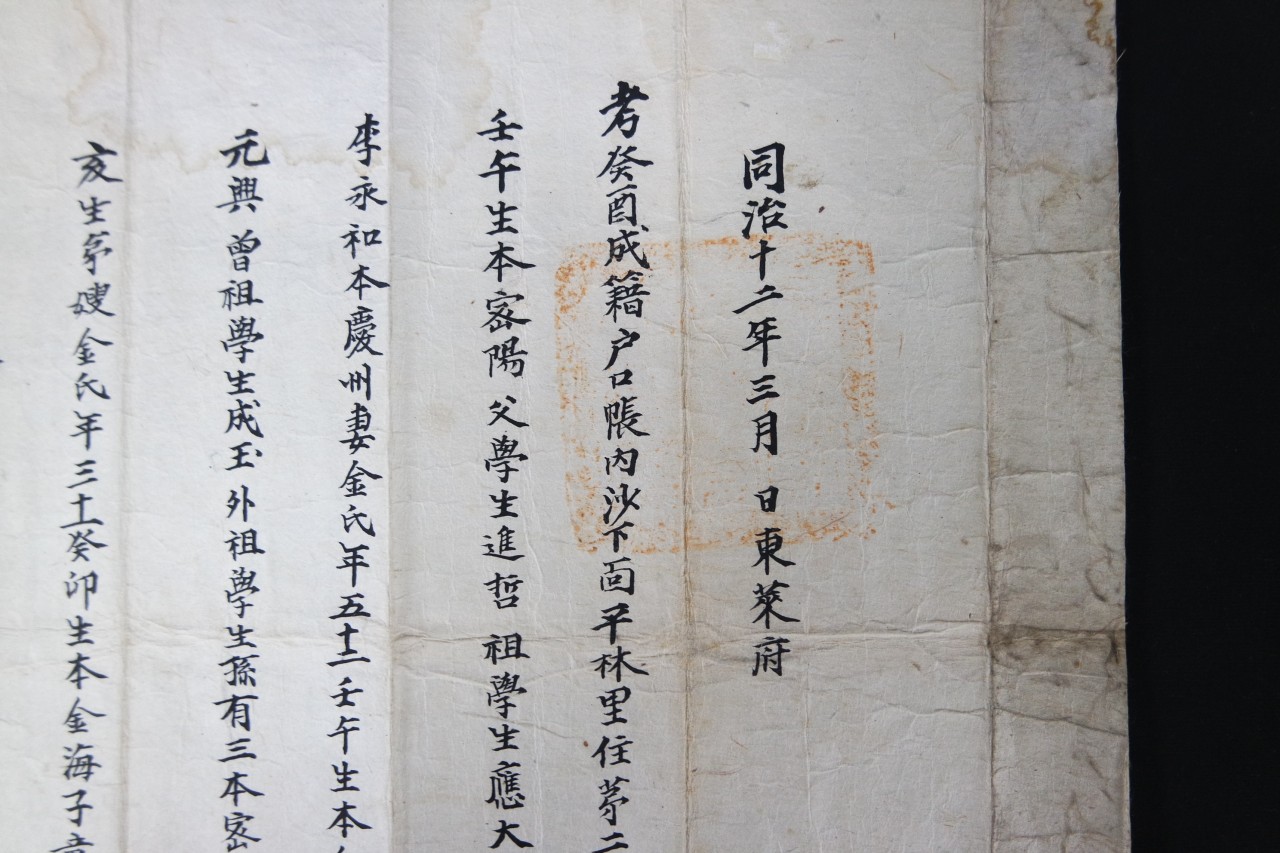 同治十二年三月 日東萊府
考癸酉成籍戶口帳內沙下面平林里住苐二
壬午生本密陽 父學生進哲 祖學生應大
李永和本慶州妻金氏年五十二壬午生本
元興 曾祖學生成玉 外祖學生孫有三本密
亥生苐嫂金氏年三十一癸卯生本金海子